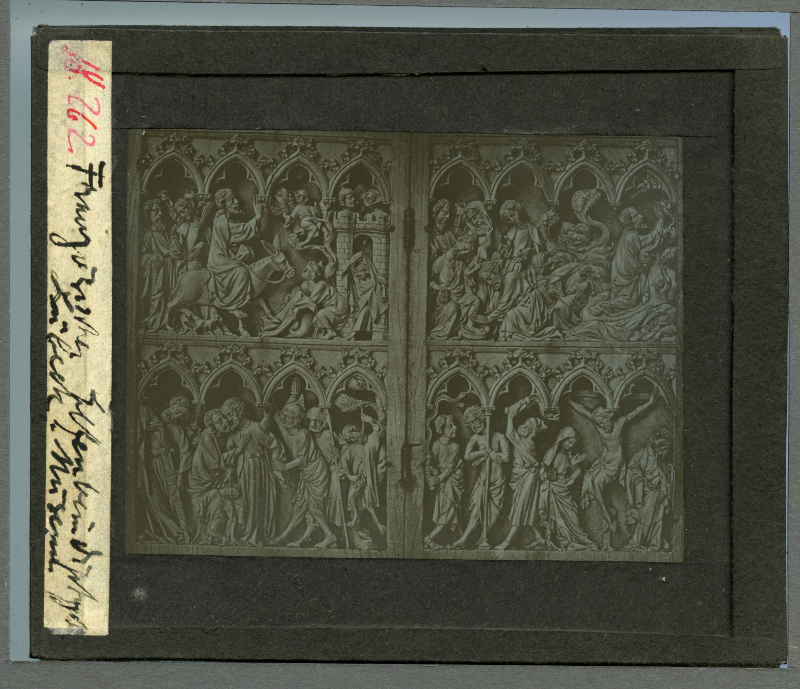 262
Französisches Elfenbeindiptychon
Lübeck: Museum